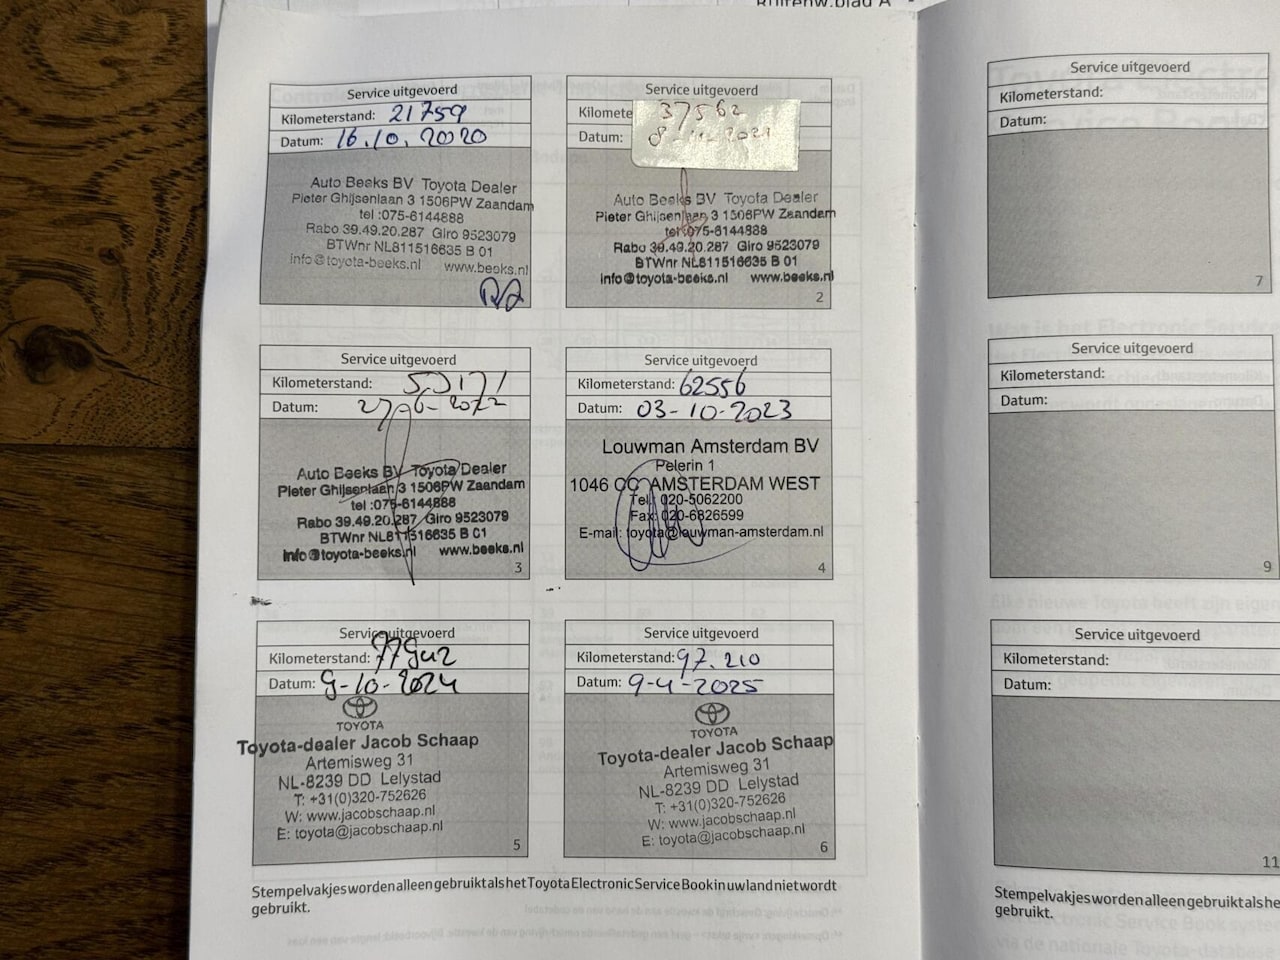 Service uitgevoerd
Kilometerstand: 21759
Datum: 16.10.2020
Auto Beeks BV Toyota Dealer
Pieter Ghijsenlaan 3 1506PW Zaandam
tel :075-6144888
Rabo 39.49.20.287 Giro 9523079
BTWnr NL811516635 B 01
info@toyota-beeks.nl www.beeks.nl
Service uitgevoerd
Kilomete 37562
Datum: 8-11-2021
Auto Beeks BV Toyota Dealer
Pieter Ghijsenlaan 3 1506PW Zaandam
tel :075-6144888
Rabo 39.49.20.287 Giro 9523079
BTWnr NL811516635 B 01
info@toyota-beeks.nl www.beeks.nl
2
Service uitgevoerd
Kilometerstand:
Datum: 27-06-2022
Auto Beeks BV Toyota Dealer
Pieter Ghijsenlaan 3 1506PW Zaandam
tel :075-6144888
Rabo 39.49.20.287 Giro 9523079
BTWnr NL811516635 B 01
info@toyota-beeks.nl www.beeks.nl
3
Service uitgevoerd
Kilometerstand: 62556
Datum: 03-10-2023
Louwman Amsterdam BV
Pelerin 1
1046 CC AMSTERDAM WEST
Tel. 020-5062200
Fax: 020-6826599
E-mail: toyota@louwman-amsterdam.nl
4
Service uitgevoerd
Kilometerstand:
Datum: 9-10-2024
TOYOTA
Toyota-dealer Jacob Schaap
Artemisweg 31
NL-8239 DD Lelystad
T: +31(0)320-752626
W: www.jacobschaap.nl
E: toyota@jacobschaap.nl
5
Service uitgevoerd
Kilometerstand: 97.210
Datum: 9-4-2025
TOYOTA
Toyota-dealer Jacob Schaap
Artemisweg 31
NL-8239 DD Lelystad
T: +31(0)320-752626
W: www.jacobschaap.nl
E: toyota@jacobschaap.nl
6
Stempelvakjes worden alleen gebruikt als het Toyota Electronic Service Book in uw land niet wordt
gebruikt.
Service uitgevoerd
Kilometerstand:
Datum:
7
Service uitgevoerd
Kilometerstand:
Datum:
9
Service uitgevoerd
Kilometerstand:
Datum:
11
Stempelvakjes worden alleen gebruikt als he
gebruikt.